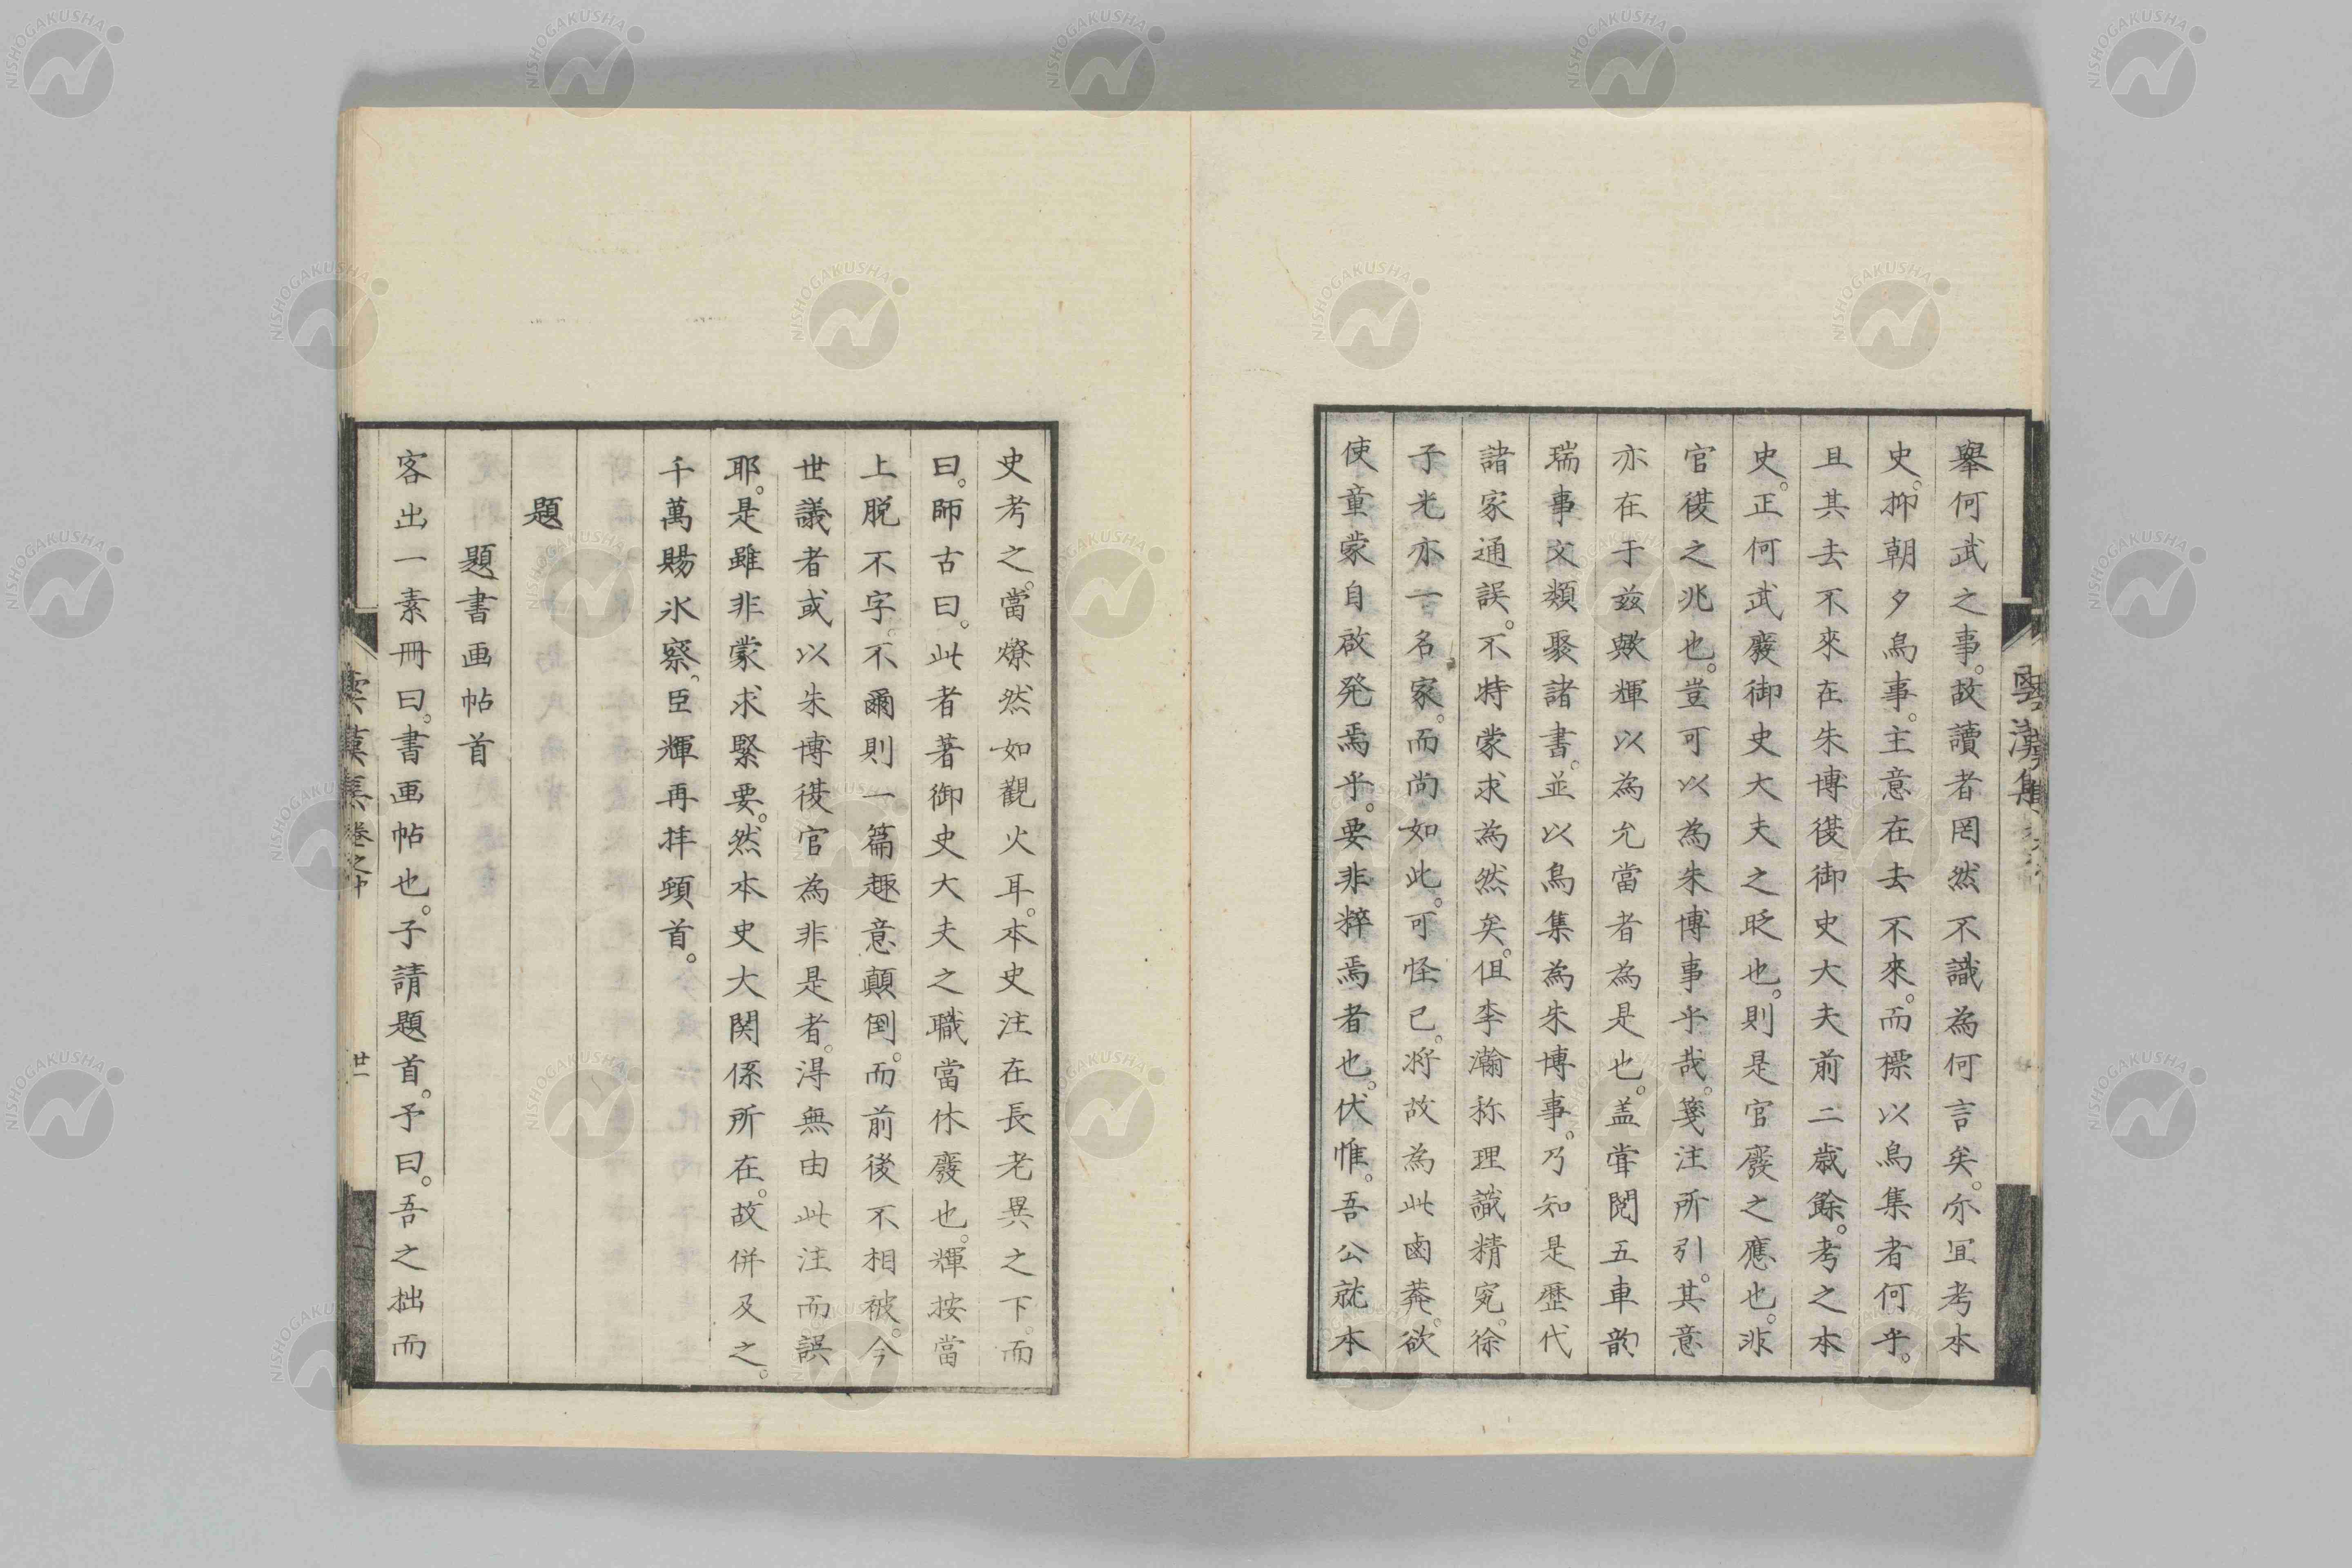 舉何武之事。故讀者罔然不識為何言矣。亦宜考本
史。抑朝夕鳥事。主意在去不來。而標以鳥集者何乎。
且其去不來在朱博復御史大夫前二歳餘。考之本
史。正何武廢御史大夫之貶也。則是官廢之應也。非
官復之兆也。豈可以為朱博事乎哉。箋注所引。其意
亦在于茲歟輝以為允當者為是也。盖甞閲五車韵
瑞事文類聚諸書。並以鳥集為朱博事。乃知是歴代
諸家通誤。不特蒙求為然矣。但李瀚称理識精究。徐
子光亦一名家。而尚如此。可怪已。将故為此鹵莽。欲
使童蒙自啟発焉乎。要非粹焉者也。伏惟。吾公就本
史考之。當燎然如觀火耳。本史注在長老異之下。而
曰。師古曰。此者著御史大夫之職當休廢也。輝按當
上脱不字。不爾則一篇趣意顛倒。而前後不相被。今
世議者或以朱博復官為非是者。淂無由此注而誤
耶。是雖非蒙求緊要。然本史大関係所在。故併及之。
千萬賜氷察。臣輝再拝頓首。
題
題書画帖首
客出一素冊曰。書画帖也。子請題首。予曰。吾之拙而
雲漢集
卷之中
廿一
NISHOGAKUSHA